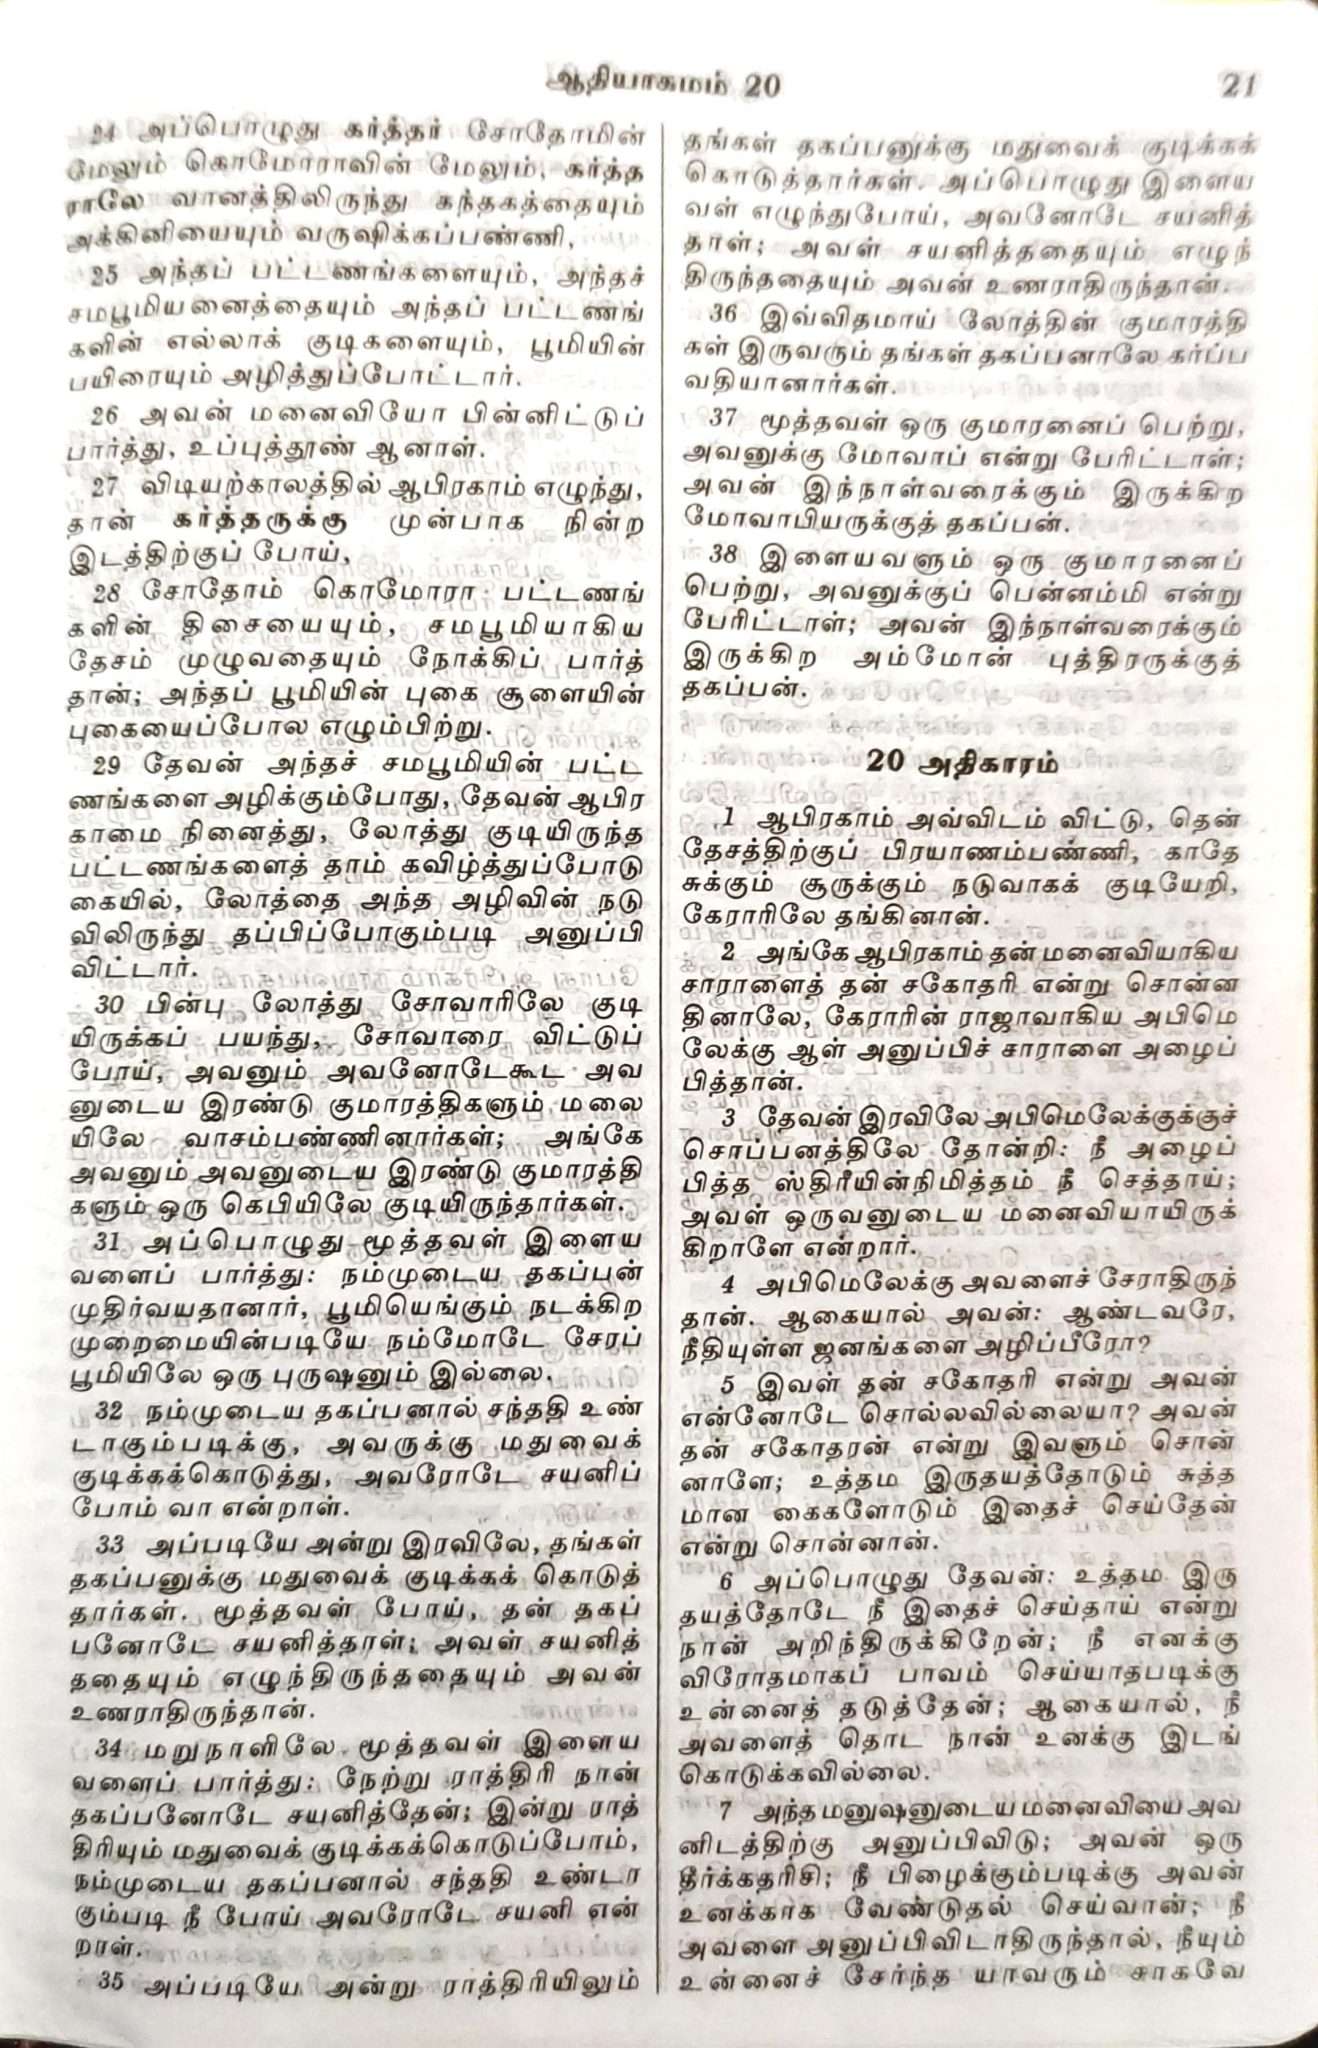 ஆதியாகமம் 20
21
24 அப்பொழுது கர்த்தர் சோதோமின்
மேலும் கொமோராவின் மேலும், கர்த்த
ராலே வானத்திலிருந்து கந்தகத்தையும்
அக்கினியையும் வருஷிக்கப்பண்ணி,
25 அந்தப் பட்டணங்களையும், அந்தச்
சமபூமியனைத்தையும் அந்தப் பட்டணங்
களின் எல்லாக் குடிகளையும், பூமியின்
பயிரையும் அழித்துப்போட்டார்.
26 அவன் மனைவியோ பின்னிட்டுப்
பார்த்து, உப்புத்தூண் ஆனாள்.
27 விடியற்காலத்தில் ஆபிரகாம் எழுந்து,
தான் கர்த்தருக்கு முன்பாக நின்ற
இடத்திற்குப் போய்,
28 சோதோம் கொமோரா பட்டணங்
களின் திசையையும், சமபூமியாகிய
தேசம் முழுவதையும் நோக்கிப் பார்த்
தான்; அந்தப் பூமியின் புகை சூளையின்
புகையைப்போல எழும்பிற்று.
29 தேவன் அந்தச் சமபூமியின் பட்ட
ணங்களை அழிக்கும்போது, தேவன் ஆபிர
காமை நினைத்து, லோத்து குடியிருந்த
பட்டணங்களைத் தாம் கவிழ்த்துப்போடு
கையில், லோத்தை அந்த அழிவின் நடு
விலிருந்து தப்பிப்போகும்படி அனுப்பி
விட்டார்.
30 பின்பு லோத்து சோவாரிலே குடி
யிருக்கப் பயந்து, சோவாரை விட்டுப்
போய், அவனும் அவனோடேகூட அவ
னுடைய இரண்டு குமாரத்திகளும் மலை
யிலே வாசம்பண்ணினார்கள்; அங்கே
அவனும் அவனுடைய இரண்டு குமாரத்தி
களும் ஒரு கெபியிலே குடியிருந்தார்கள்.
31 அப்பொழுது மூத்தவள் இளைய
வளைப் பார்த்து: நம்முடைய தகப்பன்
முதிர்வயதானார், பூமியெங்கும் நடக்கிற
முறைமையின்படியே நம்மோடே சேரப்
பூமியிலே ஒரு புருஷனும் இல்லை.
32 நம்முடைய தகப்பனால் சந்ததி உண்
டாகும்படிக்கு, அவருக்கு மதுவைக்
குடிக்கக்கொடுத்து, அவரோடே சயனிப்
போம் வா என்றாள்.
33 அப்படியே அன்று இரவிலே, தங்கள்
தகப்பனுக்கு மதுவைக் குடிக்கக் கொடுத்
தார்கள். மூத்தவள் போய், தன் தகப்
பனோடே சயனித்தாள்; அவள் சயனித்
ததையும் எழுந்திருந்ததையும் அவன்
உணராதிருந்தான்.
34 மறுநாளிலே மூத்தவள் இளைய
வளைப் பார்த்து: நேற்று ராத்திரி நான்
தகப்பனோடே சயனித்தேன்; இன்று ராத்
திரியும் மதுவைக் குடிக்கக்கொடுப்போம்,
நம்முடைய தகப்பனால் சந்ததி உண்டா
கும்படி நீ போய் அவரோடே சயனி என்
றாள்.
35 அப்படியே அன்று ராத்திரியிலும்
தங்கள் தகப்பனுக்கு மதுவைக் குடிக்கக்
கொடுத்தார்கள். அப்பொழுது இளைய
வள் எழுந்துபோய், அவனோடே சயனித்
தாள்; அவள் சயனித்ததையும் எழுந்
திருந்ததையும் அவன் உணராதிருந்தான்.
36 இவ்விதமாய் லோத்தின் குமாரத்தி
கள் இருவரும் தங்கள் தகப்பனாலே கர்ப்ப
வதியானார்கள்.
37 மூத்தவள் ஒரு குமாரனைப் பெற்று,
அவனுக்கு மோவாப் என்று பேரிட்டாள்;
அவன் இந்நாள்வரைக்கும் இருக்கிற
மோவாபியருக்குத் தகப்பன்.
38 இளையவளும் ஒரு குமாரனைப்
பெற்று, அவனுக்குப் பென்னம்மி என்று
பேரிட்டாள்; அவன் இந்நாள்வரைக்கும்
இருக்கிற அம்மோன் புத்திரருக்குத்
தகப்பன்.
20 அதிகாரம்
1 ஆபிரகாம் அவ்விடம் விட்டு, தென்
தேசத்திற்குப் பிரயாணம்பண்ணி, காதே
சுக்கும் சூருக்கும் நடுவாகக் குடியேறி,
கேராரிலே தங்கினான்.
2 அங்கே ஆபிரகாம் தன் மனைவியாகிய
சாராளைத் தன் சகோதரி என்று சொன்ன
தினாலே, கேராரின் ராஜாவாகிய அபிமெ
லேக்கு ஆள் அனுப்பிச் சாராளை அழைப்
பித்தான்.
3 தேவன் இரவிலே அபிமெலேக்குக்குச்
சொப்பனத்திலே தோன்றி: நீ அழைப்
பித்த ஸ்திரீயின்நிமித்தம் நீ செத்தாய்;
அவள் ஒருவனுடைய மனைவியாயிருக்
கிறாளே என்றார்.
4 அபிமெலேக்கு அவளைச் சேராதிருந்
தான். ஆகையால் அவன்: ஆண்டவரே,
நீதியுள்ள ஜனங்களை அழிப்பீரோ?
5 இவள் தன் சகோதரி என்று அவன்
என்னோடே சொல்லவில்லையா? அவன்
தன் சகோதரன் என்று இவளும் சொன்
னாளே; உத்தம இருதயத்தோடும் சுத்த
மான கைகளோடும் இதைச் செய்தேன்
என்று சொன்னான்.
6 அப்பொழுது தேவன்: உத்தம இரு
தயத்தோடே நீ இதைச் செய்தாய் என்று
நான் அறிந்திருக்கிறேன்; நீ எனக்கு
விரோதமாகப் பாவம் செய்யாதபடிக்கு
உன்னைத் தடுத்தேன்; ஆகையால், நீ
அவளைத் தொட நான் உனக்கு இடங்
கொடுக்கவில்லை.
7 அந்த மனுஷனுடைய மனைவியை அவ
னிடத்திற்கு அனுப்பிவிடு; அவன் ஒரு
தீர்க்கதரிசி; நீ பிழைக்கும்படிக்கு அவன்
உனக்காக வேண்டுதல் செய்வான்; நீ
அவளை அனுப்பிவிடாதிருந்தால், நீயும்
உன்னைச் சேர்ந்த யாவரும் சாகவே